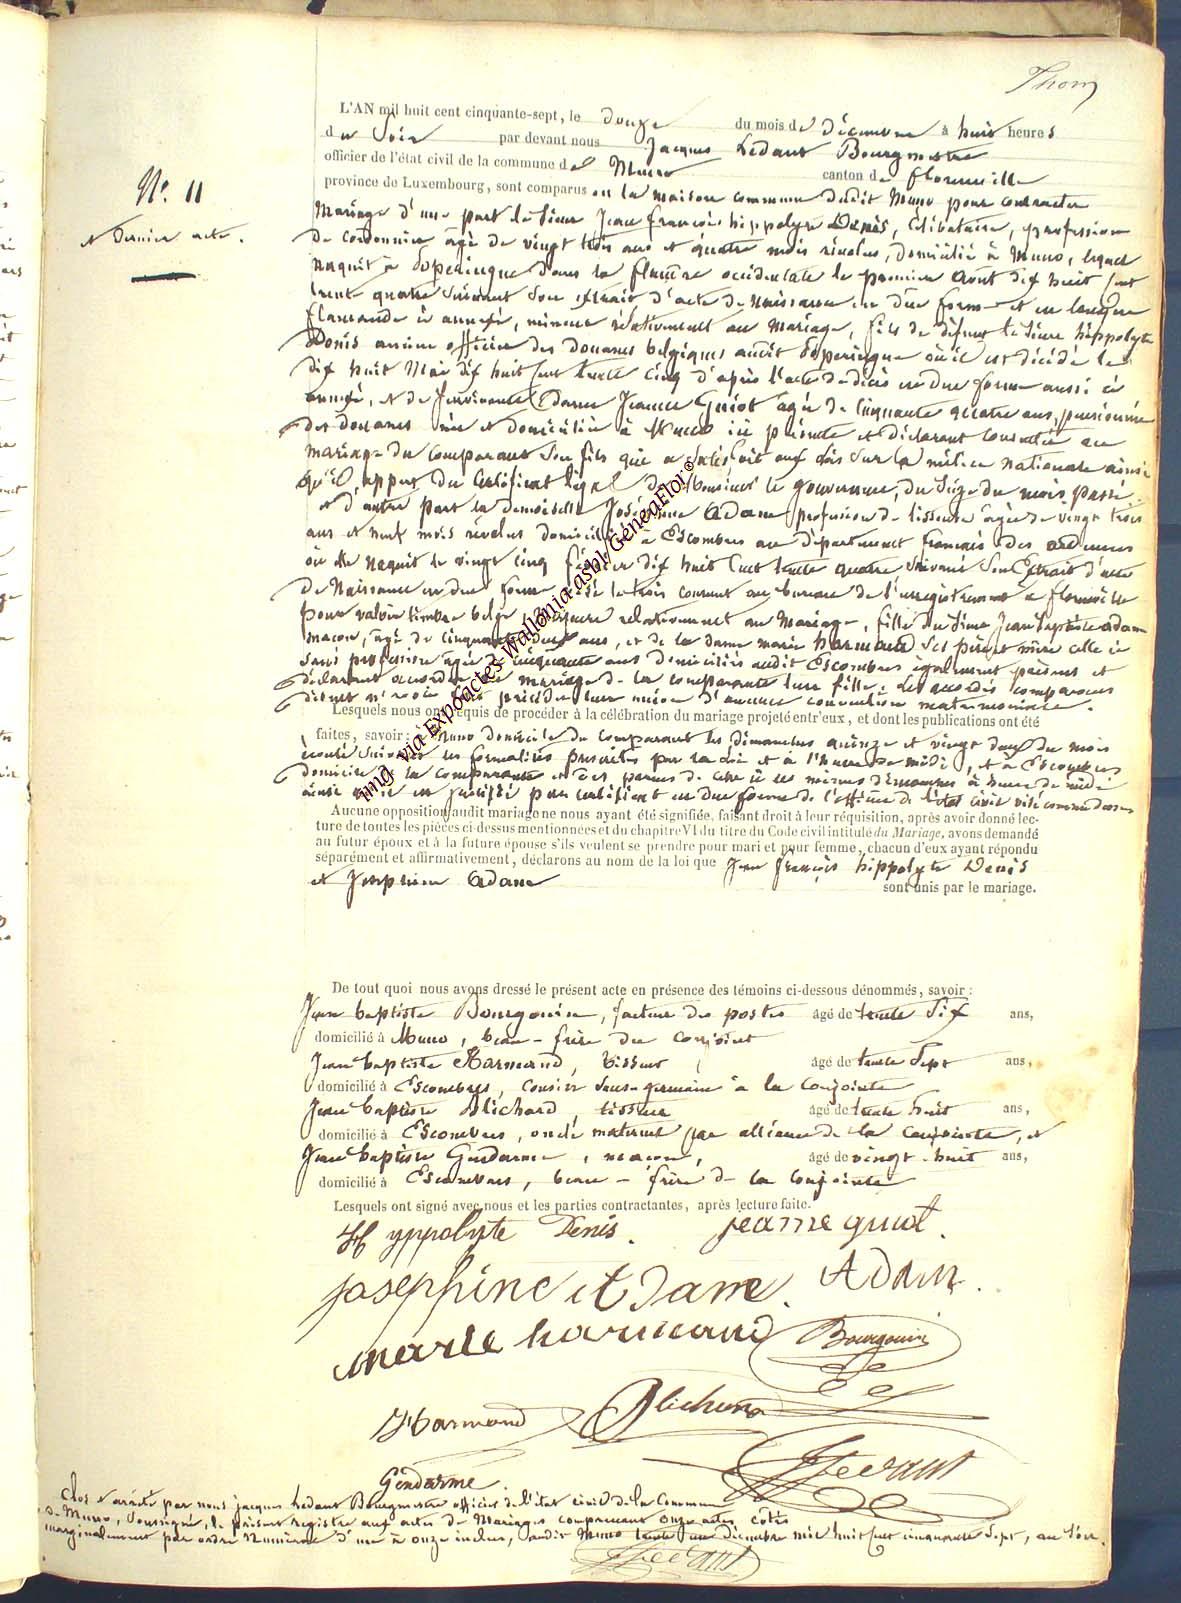 Thom
L'AN mil huit cent cinquante-sept, le douze du mois de Décembre à huit heures
du Soir par devant nous Jacques Ledant Bourgmestre
officier de l'état civil de la commune de Muno canton de Florenville
province de Luxembourg, sont comparus en la maison commune dudit Muno pour contracter
N° 11
et dernier acte.
Mariage d'une part le Sieur Jean françois hippolyte Denis, Célibataire, profession
de cordonnier âgé de vingt trois ans et quatre mois révolus, domicilié à Muno, lequel
naquit à poperingue dans la flandre occidentale le premier Aout dix huit cent
trente quatre suivant son extrait d'acte de Naissance en due forme et en langue
flamande ci annexé, mineur relativement au Mariage, fils de défunt le Sieur hippolyte
Denis ancien officier des Douanes belgiques audit poperingue où il est décédé le
dix huit Mai dix huit cent trente cinq d'après l'acte de décès en due forme aussi ci
annexé, et de survivante Dame Jeanne Guiot âgée de cinquante quatre ans, pensionnée
des douanes née et domiciliée à Muno ici présente et déclarant consentir au
mariage du comparant son fils qui a satisfait aux lois sur la milice nationale ainsi
qu'il appert du Certificat légal de Monsieur le gouverneur, du Siège du mois passé.
et d'autre part la demoiselle Joséphine Adam profession de tisseuse âgée de vingt trois
ans et neuf mois révolus domiciliée à Escombres au département français des ardennes
où elle naquit le vingt cinq février dix huit cent trente quatre suivant son Extrait d'acte
de Naissance en due forme le trois courant au bureau de l'enregistrement à florenville
pour valoir timbre belge mineure relativement au Mariage, fille du Sieur Jean baptiste adam
macon, âgé de cinquante deux ans, et de la dame marie harmand ses père et mère celle ci
sans profession âgée de cinquante ans domiciliés audit Escombres également présens et
déclarant accorder le mariage de la comparante leur fille, les accordés comparans
Lesquels nous ont requis de procéder à la célébration du mariage projeté entr'eux, et dont les publications ont été
faites, savoir: à Muno domicile du comparant les dimanches quinze et vingt deux du mois
écoulé suivant les formalités prescrites par la loi et à l'heure de midi, et à Escombres
domicile de la comparante et des parens de celle ci les mêmes dimanches à heure de midi
ainsi qu'il est justifié par certificat en due forme de l'officier de l'état civil
Aucune opposition audit mariage ne nous ayant été signifiée, faisant droit à leur réquisition, après avoir donné lec-
ture de toutes les pièces ci-dessus mentionnées et du chapitre VI du titre du Code civil intitulé du Mariage, avons demandé
au futur époux et à la future épouse s'ils veulent se prendre pour mari et pour femme, chacun d'eux ayant répondu
séparément et affirmativement, déclarons au nom de la loi que Jean françois hippolyte Denis
et Josephine Adam sont unis par le mariage.
De tout quoi nous avons dressé le présent acte en présence des témoins ci-dessous dénommés, savoir :
Jean baptiste Bourgouin, facteur des postes âgé de trente Six ans,
domicilié à Muno, beau-frère du conjoint
Jean baptiste Harmand, tisseur âgé de trente Sept ans,
domicilié à Escombres, cousin sous-germain à la Conjointe
Jean baptiste Blichard, tisseur âgé de trente huit ans,
domicilié à Escombres, oncle maternel par alliance de la conjointe, et
Jean baptiste Gendarme, macon, âgé de vingt-huit ans,
domicilié à Escombres, beau-frère de la conjointe
Lesquels ont signé avec nous et les parties contractantes, après lecture faite.
Hyppolyte Denis. jeanne guiot.
josephine Adam. Adam.
marie harmand Bourgouin
Harmand Blichard
Gendarme. JLedant
Clos et arrêté par nous jacques Ledant Bourgmestre officier de l'état civil de la Commune
de Muno, Soussigné, le présent registre aux actes de Mariages comprenant onze actes cotés
marginalement par ordre Numéral d'un à onze inclus, audit Muno trente un décembre mil huit cent cinquante Sept, au Soir.
JLedant
img via Expoactes-Wallonia asbl GénéaFlor©